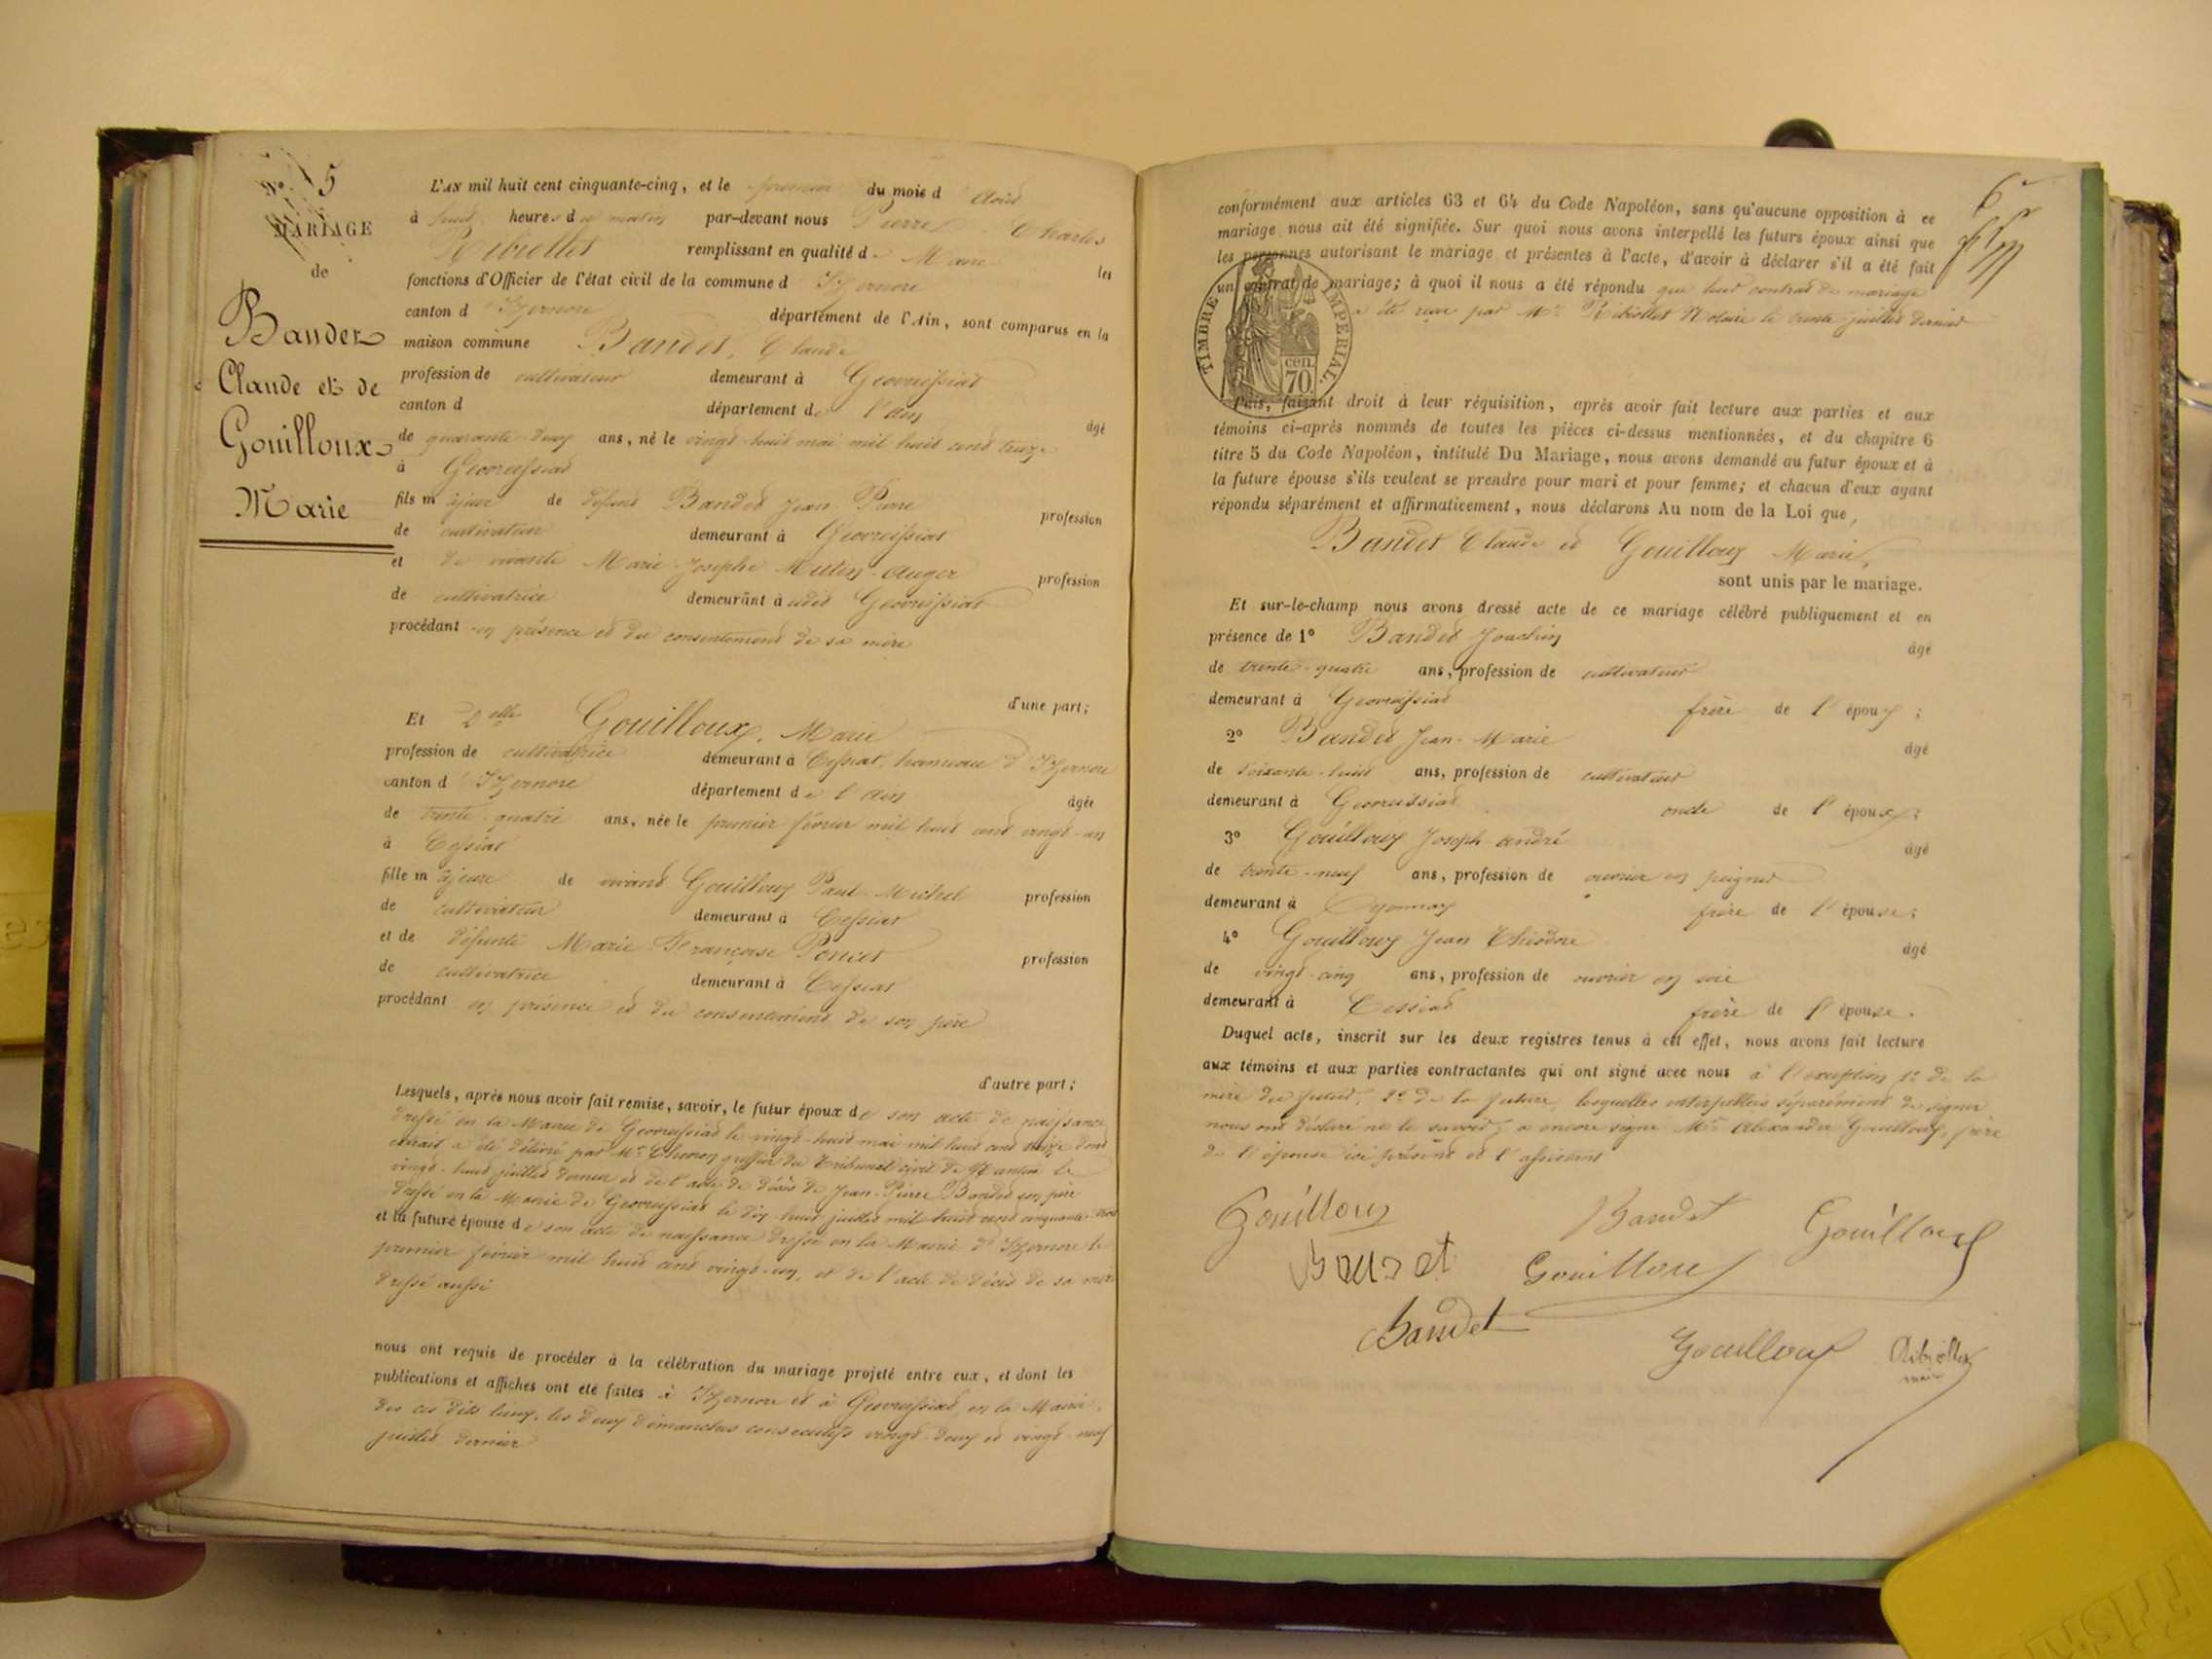 N° 5
MARIAGE
de
Baudet
Claude et de
Gouilloux
Marie
L'AN mil huit cent cinquante-cinq, et le premier du mois d'Août
à huit heures du matin par-devant nous Pierre Charles
Ribiollet remplissant en qualité de Maire les
fonctions d'Officier de l'état civil de la commune d'Izernore
canton d'Izernore département de l'Ain, sont comparus en la
maison commune Baudet, Claude
profession de cultivateur demeurant à Geovreissiat
canton d département de l'Ain âgé
de quarante-deux ans, né le vingt-huit mai mil huit cent treize
à Geovreissiat
fils majeur de défunt Baudet Jean Pierre profession
de cultivateur demeurant à Geovreissiat
et de vivante Marie Josephe profession
de cultivatrice demeurant à Geovreissiat
procédant en présence et du consentement de sa mère
d'une part;
Et Delle Gouilloux, Marie
profession de cultivatrice demeurant à Cessiat, hameau d'Izernore
canton d'Izernore département de l'Ain âgée
de trente-quatre ans, née le premier février mil huit cent vingt-un
à Cessiat
fille majeure de vivant Gouilloux Paul-Michel profession
de cultivateur demeurant à Cessiat
et de défunte Marie Françoise Poncet profession
de cultivatrice demeurant à Cessiat
procédant en présence et du consentement de son père
d'autre part;
Lesquels, après nous avoir fait remise, savoir, le futur époux de son acte de naissance
dressé en la Mairie de Geovreissiat le vingt-huit mai mil huit cent treize dont
extrait a été délivré par Mr greffier du Tribunal civil de Nantua le
vingt-huit juillet dernier et de l'acte de décès de Jean-Pierre Baudet son père
dressé en la Mairie de Geovreissiat le dix-huit juillet mil huit cent cinquante-trois
et la future épouse de son acte de naissance dressé en la Mairie d'Izernore le
premier février mil huit cent vingt-un, et de l'acte de décès de sa mère
dressé aussi
nous ont requis de procéder à la célébration du mariage projeté entre eux, et dont les
publications et affiches ont été faites à Izernore et à Geovreissiat, en la Mairie
des ces dits lieux, les deux dimanches consécutifs vingt-deux et vingt-neuf
juillet dernier
6
conformément aux articles 63 et 64 du Code Napoléon, sans qu'aucune opposition à ce
mariage nous ait été signifiée. Sur quoi nous avons interpellé les futurs époux ainsi que
les personnes autorisant le mariage et présentes à l'acte, d'avoir à déclarer s'il a été fait
un contrat de mariage; à quoi il nous a été répondu que leur contrat de mariage
a été reçu par Me Ribiollet Notaire le trente juillet dernier
TIMBRE IMPERIAL.
cen.
70.
Puis, faisant droit à leur réquisition, après avoir fait lecture aux parties et aux
témoins ci-après nommés de toutes les pièces ci-dessus mentionnées, et du chapitre 6
titre 5 du Code Napoléon, intitulé Du Mariage, nous avons demandé au futur époux et à
la future épouse s'ils veulent se prendre pour mari et pour femme; et chacun d'eux ayant
répondu séparément et affirmativement, nous déclarons Au nom de la Loi que,
Baudet Claude et Gouilloux Marie,
sont unis par le mariage.
Et sur-le-champ nous avons dressé acte de ce mariage célébré publiquement et en
présence de 1° Baudet Joachim âgé
de trente-quatre ans, profession de cultivateur
demeurant à Geovreissiat frère de l'époux;
2° Baudet Jean-Marie âgé
de soixante-huit ans, profession de cultivateur
demeurant à Geovreissiat oncle de l'époux;
3° Gouilloux Joseph-André âgé
de trente-neuf ans, profession de ouvrier en peignes
demeurant à Oyonnax frère de l'épouse;
4° Gouilloux Jean Théodore âgé
de vingt-cinq ans, profession de ouvrier en soie
demeurant à Cessiat frère de l'épouse.
Duquel acte, inscrit sur les deux registres tenus à cet effet, nous avons fait lecture
aux témoins et aux parties contractantes qui ont signé avec nous à l'exception 1° de la
mère du futur, 2° de la future, lesquelles interpellées séparément de signer
nous ont déclaré ne le savoir; a encore signé Mr Alexandre Gouilloux, frère
de l'épouse ici présent et l'assistant
Gouilloux Baudet Gouilloux
Baudet Gouilloux
Baudet
Gouilloux Ribiollet
maire